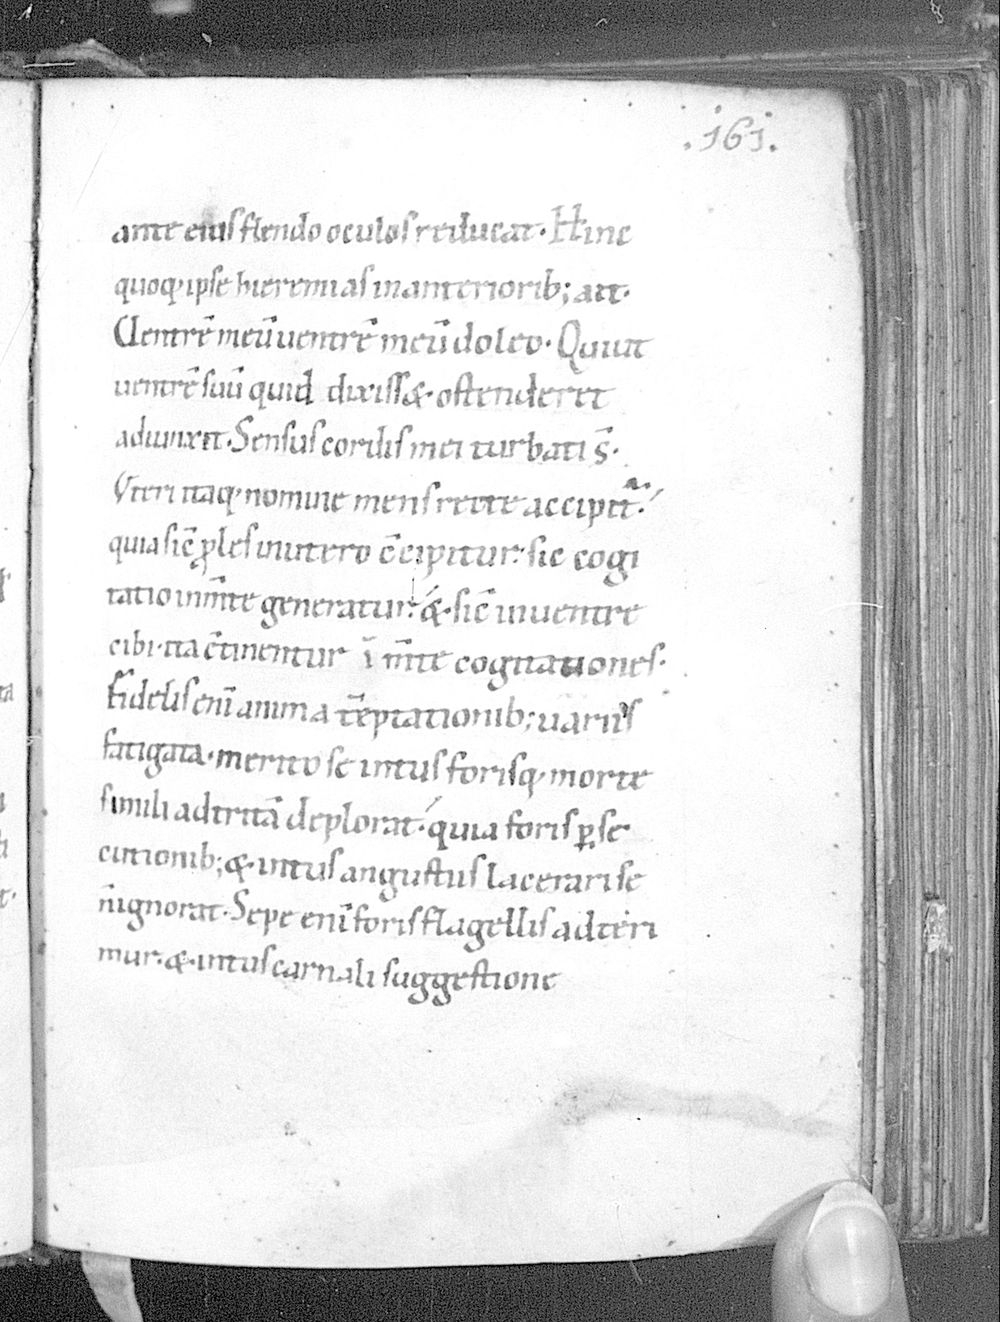 .161.
ante eius flendo oculos reducat. Hinc
quoq; ipse hieremias in anteriorib; ait.
Uentrē meū uentrē meū doleo. Qui ut
uentrē suū quid dixiss& ostenderet
adiunxit. Sensus cordis mei turbati s̄.
Uteri itaq; nomine mens recte accipit̄.
quia sic̄ ꝓles in utero c̄cipitur. sic cogi
tatio in m̄te generatur. & sic̄ in uentre
cibi. ita c̄tinentur ī m̄te cogitationes.
Fidelis enī anima tēptationib; uariis
fatigata. merito se intus forisq; morte
simili adtritā deplorat. quia foris ꝑse
cutionib; & intus angustus lacerari se
n̄ ignorat. Sepe enī foris flagellis adteri
mur. & intus carnali suggestione